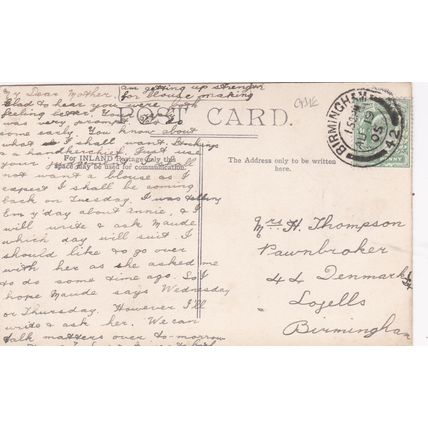 am getting up strength
for blouse making
My Dear Mother,
Glad to hear you were both
feeling better. You
was very prompt.
some early. You know about
what I shall want. Stockings
& handkerchief,
your
not want a blouse as I
expect I shall be coming
back on Tuesday. I was telling
Em y'day about Annie, & I
will write & ask Maude
which day will suit. I
should like to go over
with her as she asked me
to do some time ago. So I
hope Maude says Wednesday
or Thursday. However I'll
write & ask her. We can
talk matters over to-morrow
POST CARD.
For INLAND Postage only this
space may be used for communication.
The Address only to be written
here.
BIRMINGHAM
AU 9
05
42
PENNY
Mrs. H. Thompson
Pawnbroker
44 Denmark
Lozells
Birmingham